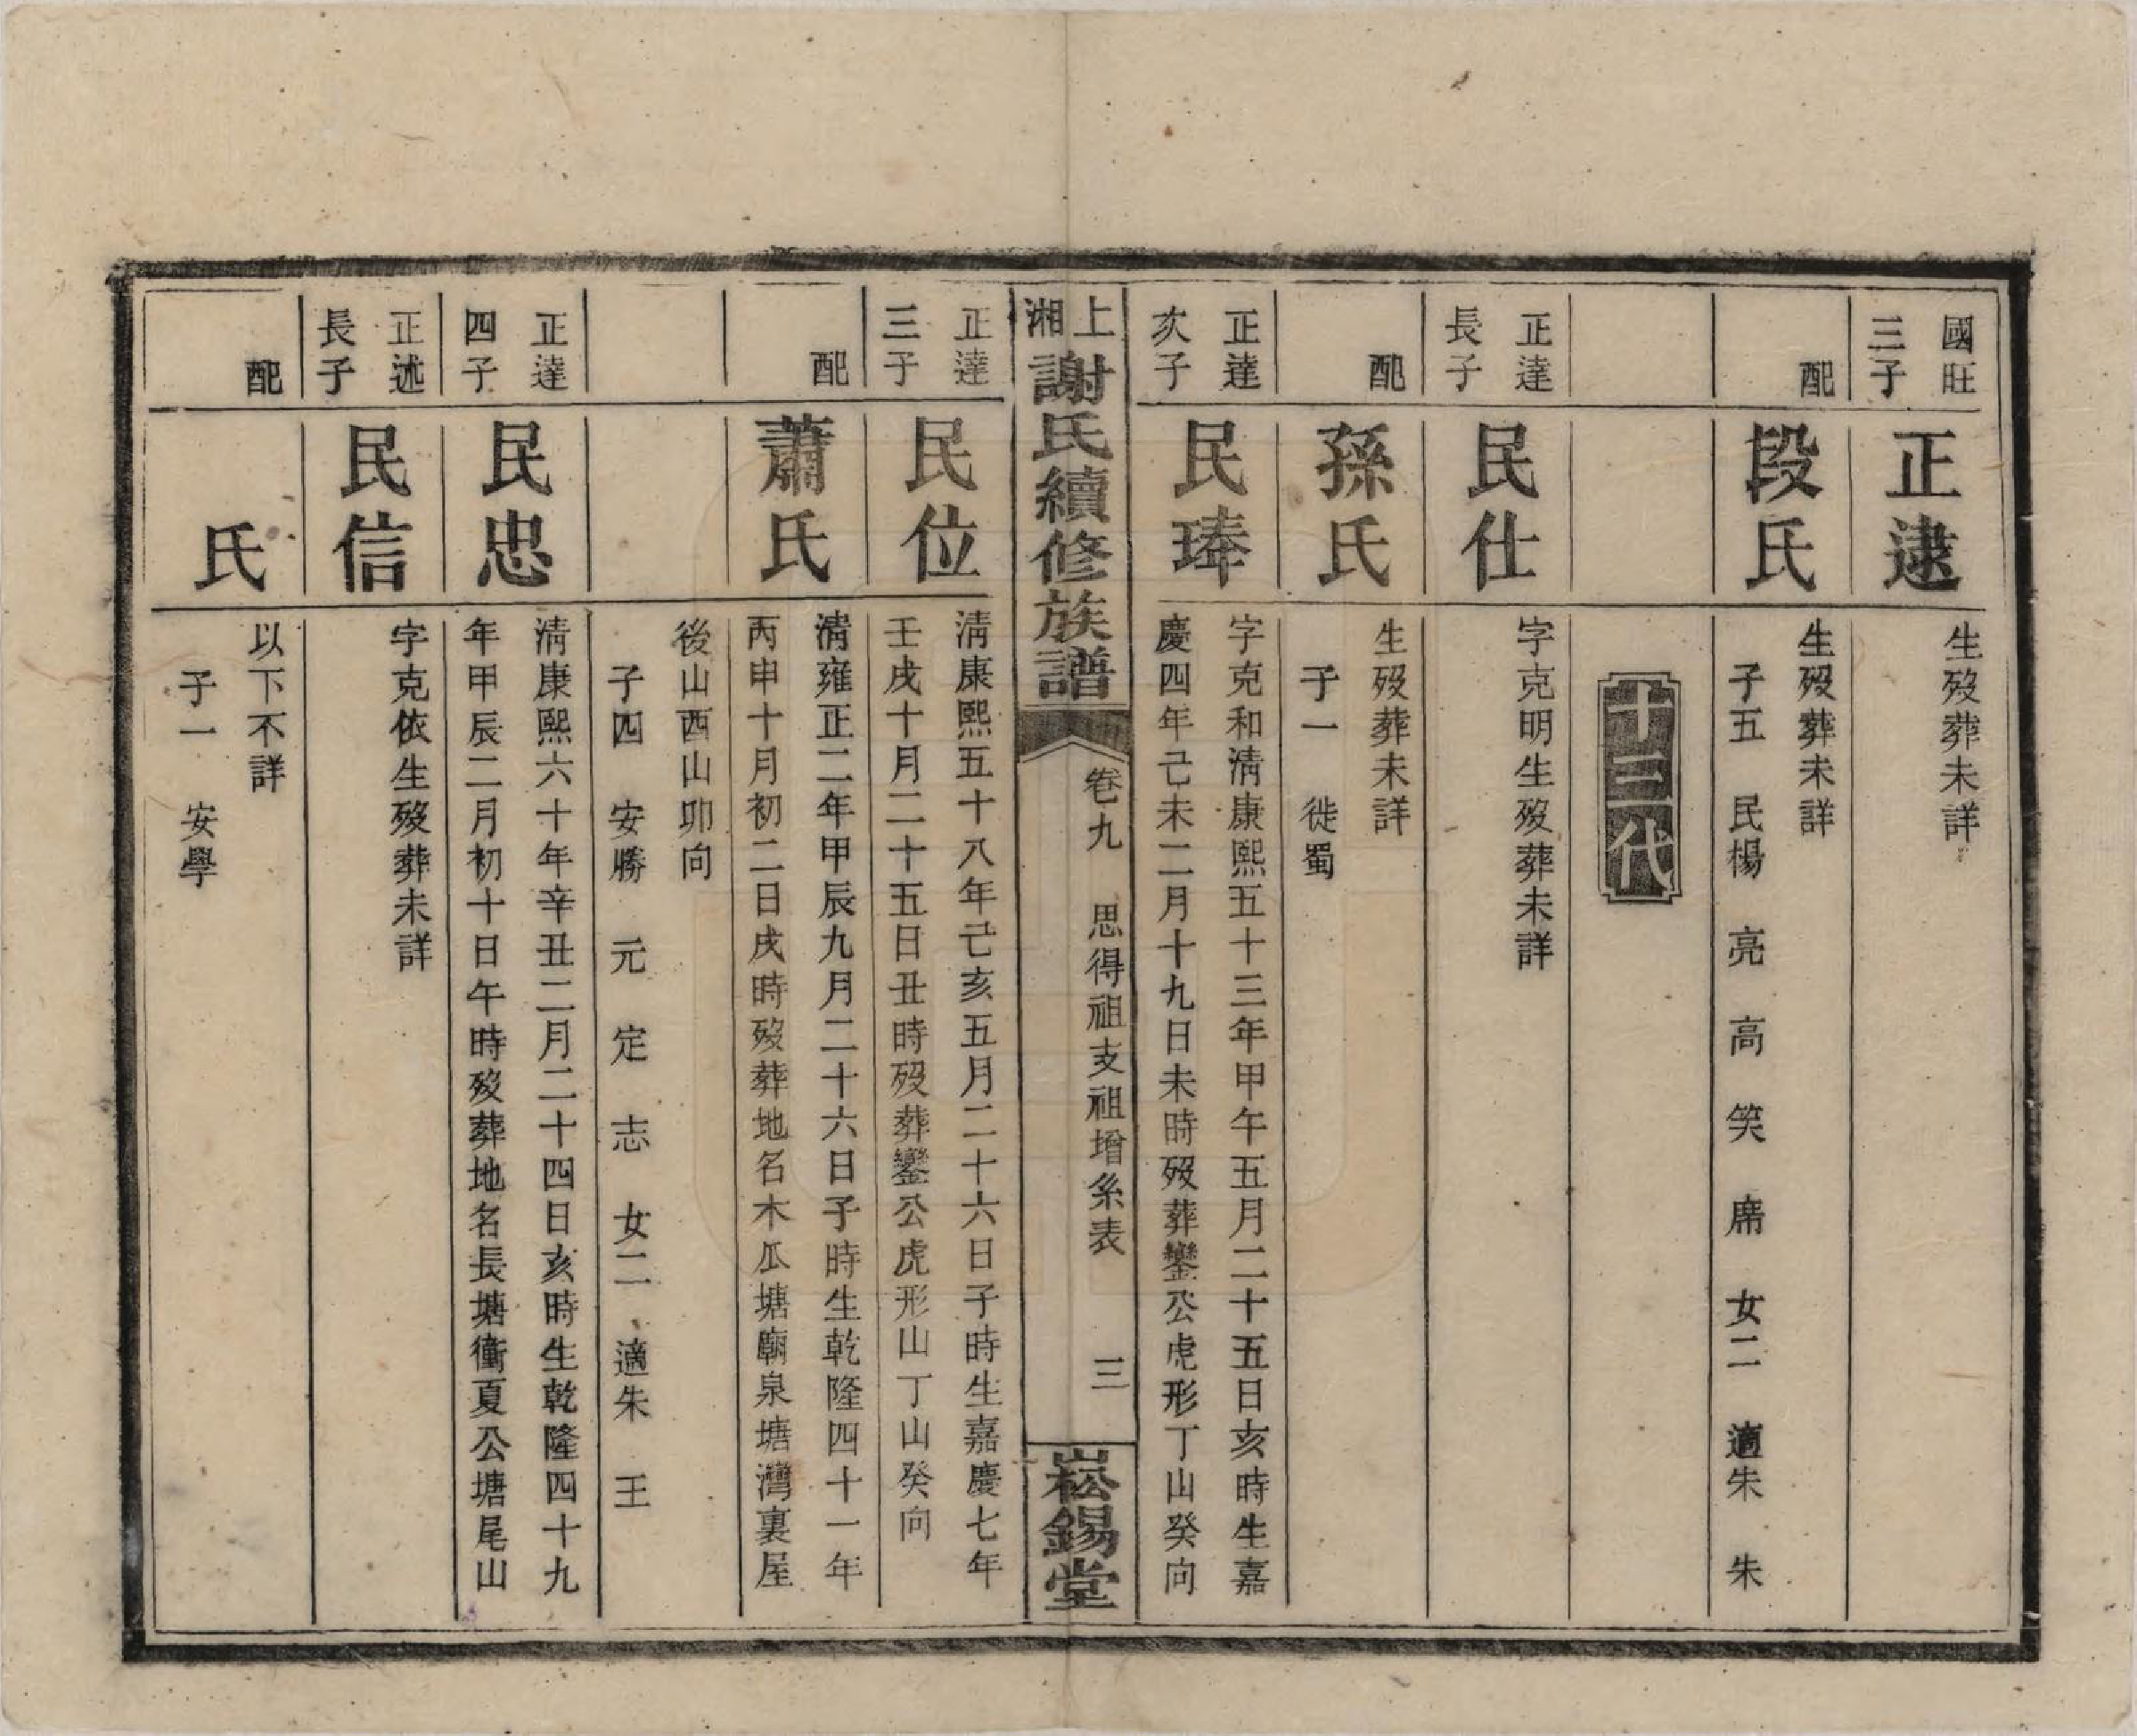 國旺
三子
正逮
生歿葬未詳
配
段氏
生歿葬未詳
子五　民楊　亮　高　笑　席　女二　適朱　朱
十三代
正達
長子
民仕
字克明生歿葬未詳
配
孫氏
生歿葬未詳
子一　徙蜀
正達
次子
民琫
字克和清康熙五十三年甲午五月二十五日亥時生嘉
慶四年己未二月十九日未時歿葬鑾公虎形丁山癸向
上湘
謝氏續修族譜
卷九　思得祖支祖增系表　三
崧錫堂
正達
三子
民位
清康熙五十八年己亥五月二十六日子時生嘉慶七年
壬戌十月二十五日丑時歿葬鑾公虎形山丁山癸向
配
蕭氏
清雍正二年甲辰九月二十六日子時生乾隆四十一年
丙申十月初二日戌時歿葬地名木瓜塘廟泉塘灣裏屋
後山酉山卯向
子四　安勝　元　定　志　女二　適朱　王
正達
四子
民忠
清康熙六十年辛丑二月二十四日亥時生乾隆四十九
年甲辰二月初十日午時歿葬地名長塘衝夏公塘尾山
正述
長子
民信
字克依生歿葬未詳
配
氏
以下不詳
子一　安學